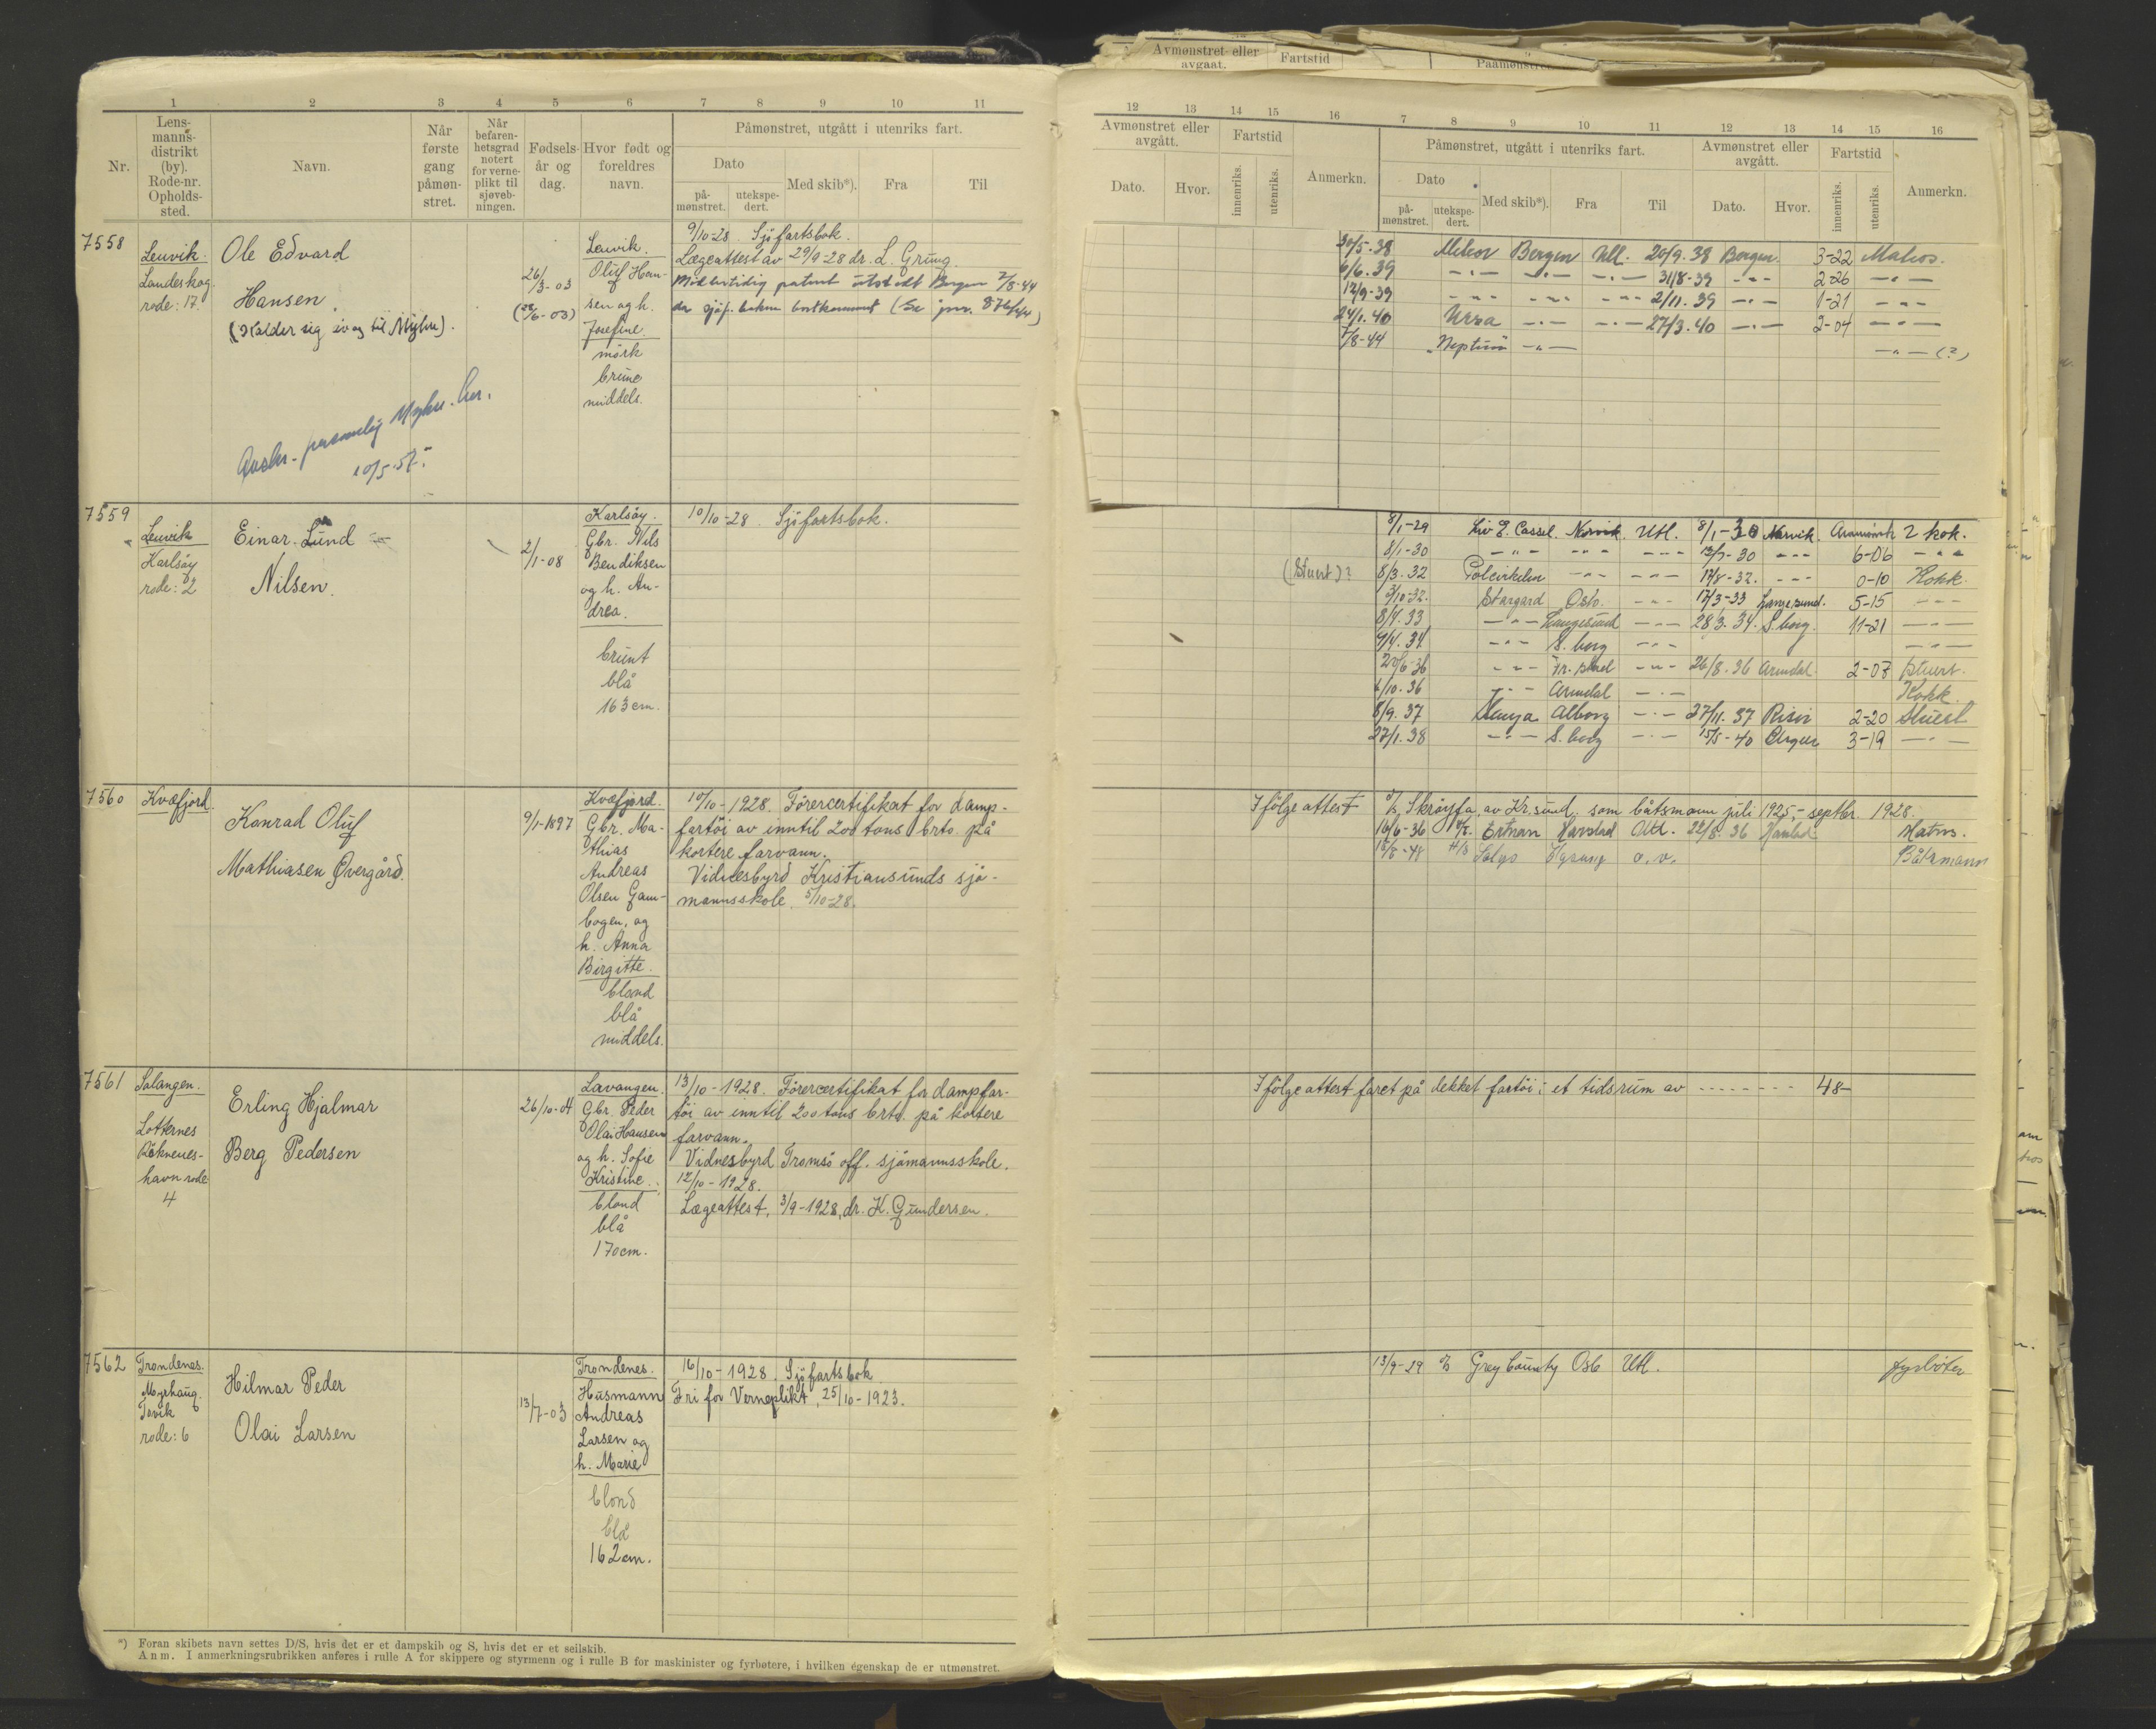 Avmønstret eller
avgaat.
Fartstid
1 2 3 4 5 6 7 8 9 10 11
Nr.
Lens-
manns-
distrikt
(by).
Rode-nr.
Opholds-
sted.
Navn.
Når
første
gang
påmøn-
stret.
Når
befaren-
hetsgrad
notert
for verne-
plikt til
sjøveb-
ningen.
Fødsels-
år og
dag.
Hvor født og
foreldres
navn.
Påmønstret, utgått i utenriks fart.
Dato
på-
mønstret.
utekspe-
dert.
Med skib*).
Fra
Til
7558
Lenvik.
Landeskog
rode: 17.
Ole Edvard
Hansen.
(Kalder sig
til Myhre).
10/5-57.
26/3-03
(26/6-03)
Lenvik.
Oluf Han-
sen og h.
Josefine.
mörk
brune
middels.
9/10-28. Sjöfartsbok.
Lægeattest av 29/9-28 dr. L. Grüng.
Midlertidig patent utstedt Bergen 7/8-44
da sjöf. boken bortkommet (Se jnr. 876/44)
7559
Lenvik
Karlsöy
rode: 2
Einar Lünd
Nilsen.
2/1-08
Karlsöy.
Gbr. Nils
Bendiksen
og h. An-
drea.
brünt
blå
163 cm.
10/10-28. Sjöfartsbok.
7560
Kvæfjord.
Konrad Olüf
Mathiasen Øvergård.
9/1-1897
Kvæfjord.
Gbr. Ma-
thias
Andreas
Olsen Gam-
bogen, og
h. Anna
Birgitte.
blond
blå
middels.
10/10-1928. Förercertifikat for damp-
fartöi av inntil 200 tons brto. på
kortere farvann.
Vidnesbyrd Kristiansünds sjö-
mannsskole. 5/10-28.
7561
Salangen.
Lotternes
Röknes-
havn rode
4
Erling Hjalmar
Berg Pedersen
26/10-04
Lavangen.
Gbr. Peder
Olai Hansen
og h. Sofie
Kristine.
blond
blå
170 cm.
13/10-1928. Förercertifikat for dampfar-
töi av inntil 200 tons brto. på kortere
farvann.
Vidnesbyrd Tromsö off. sjömannsskole.
12/10-1928.
Lægeattest, 3/9-1928, dr. K. Gündersen.
7562
Trondenes.
Myrhaüg.
Tovik
rode: 6
Hilmar Peder
Olai Larsen
13/7-03
Trondenes.
Hüsmann
Andreas
Larsen og
h. Marie
blond
blå
162 cm.
16/10-1928. Sjöfartsbok
Fri for Verneplikt, 25/10-1923.
*) Foran skibets navn settes D/S, hvis det er et dampskib og S, hvis det er et seilskib.
Anm. I anmerkningsrubrikken anføres i rulle A for skippere og styrmenn og i rulle B for maskinister og fyrbøtere, i hvilken egenskap de er utmønstret.
12 13 14 15 16 7 8 9 10 11 12 13 14 15 16
Avmønstret eller
avgått.
Fartstid
Dato.
Hvor.
innenriks.
utenriks.
Anmerkn.
Påmønstret, utgått i utenriks fart.
Dato
på-
mønstret.
utekspe-
dert.
Med skib*).
Fra
Til
Avmønstret eller
avgått.
Dato.
Hvor.
Fartstid
innenriks.
utenriks.
Anmerkn.
30/5-38 Meteor Bergen Utl. 20/9.38 Bergen. 3-22 Matros.
6/6.39 -"- -"- -"- 31/8-39 -"- 2-26 -"-
12/9-39 -"- -"- -"- 2/11.39 -"- 1-21 -"-
24/1.40 Ursa -"- -"- 27/3.40 -"- 2-04 -"-
7/8-44 "Neptun" -"- -"- (?)
8/1-29 Liv E. Cassel. Narvik. Utl. 8/1-30 Narvik 2 kok.
8/1-30 -"- -"- -"- 13/7-30 -"- 6-06 -"-
(Stuert)? 8/3.32 Polcirkelen -"- -"- 17/8-32. -"- 0-10 Kokk.
3/10-32. Stargard Oslo. -"- 17/3-33 Langesund. 5-15 -"-
8/4.33 -"- Langesund -"- 28/3.34. S.borg. 11-21 -"-
9/4.34 -"- S.borg -"- -"-
20/6-36 -"- Fr.stad -"- 26/8.36 Arendal. 2-07 Stuert.
6/10.36 -"- Arendal -"- Kokk.
8/9.37 Alborg -"- 27/11.37 Risör 2-20 Stuert
27/1.38 -"- S.borg -"- 15/5-40 Bergen 3-19 -"-
Ifölge attest D/S Skröyfa, av Kr.sünd, som båtsmann juli 1925,- septbr. 1928.
16/6-36 Harstad Utl. 22/8.36 Harstad. Matros.
o.v. Båtsmann
Ifölge attest faret på dekket fartöi i et tidsrüm av -------- 48-
13/9-29 D/S Grey County Oslo Utl. fyrböter